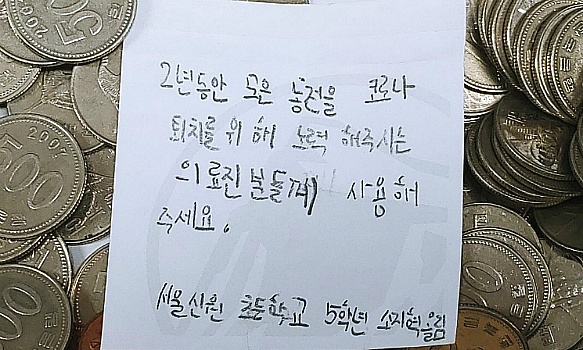 2년동안 모은 동전을 코로나
퇴치를 위해 노력 해주시는
의료진분들께 사용해
주세요.
서울신원 초등학교 5학년 소지혁올림
500
2007
500